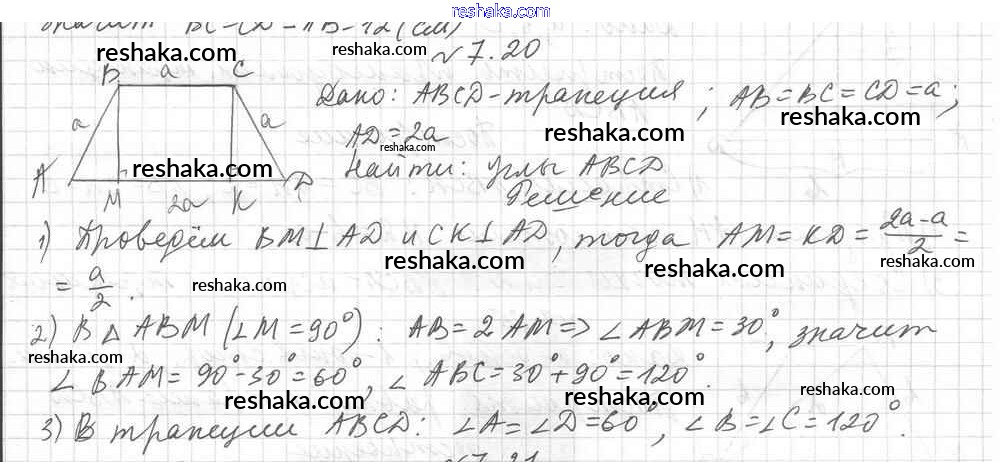 www.reshaka.com
значит BC=CD=AB=12 (см)
reshaka.com
reshaka.com
№ 7.20
B a C
a a
A M 2a K D
reshaka.com
Дано: ABCD-трапеция ; AB=BC=CD=a;
reshaka.com
AD=2a
reshaka.com
Найти: углы ABCD
Решение
1) Проведём BM⊥AD и CK⊥AD, тогда AM=KD= (2a-a)/2 =
reshaka.com
reshaka.com
reshaka.com
= a/2 .
reshaka.com
2) В △ ABM (∠M=90°): AB=2AM=> ∠ABM=30°, значит
reshaka.com
reshaka.com
∠BAM=90°-30°=60°, ∠ABC=30°+90°=120°.
reshaka.com
reshaka.com
3) В трапеции ABCD: ∠A=∠D=60°, ∠B=∠C=120°.
reshaka.com
reshaka.com
№7.21
reshaka.com